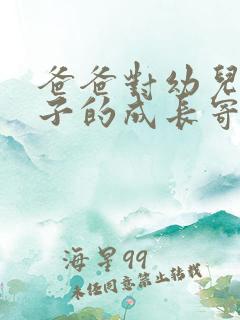 爸爸對幼兒
子的成長寄
海星99
未经同意禁止转载